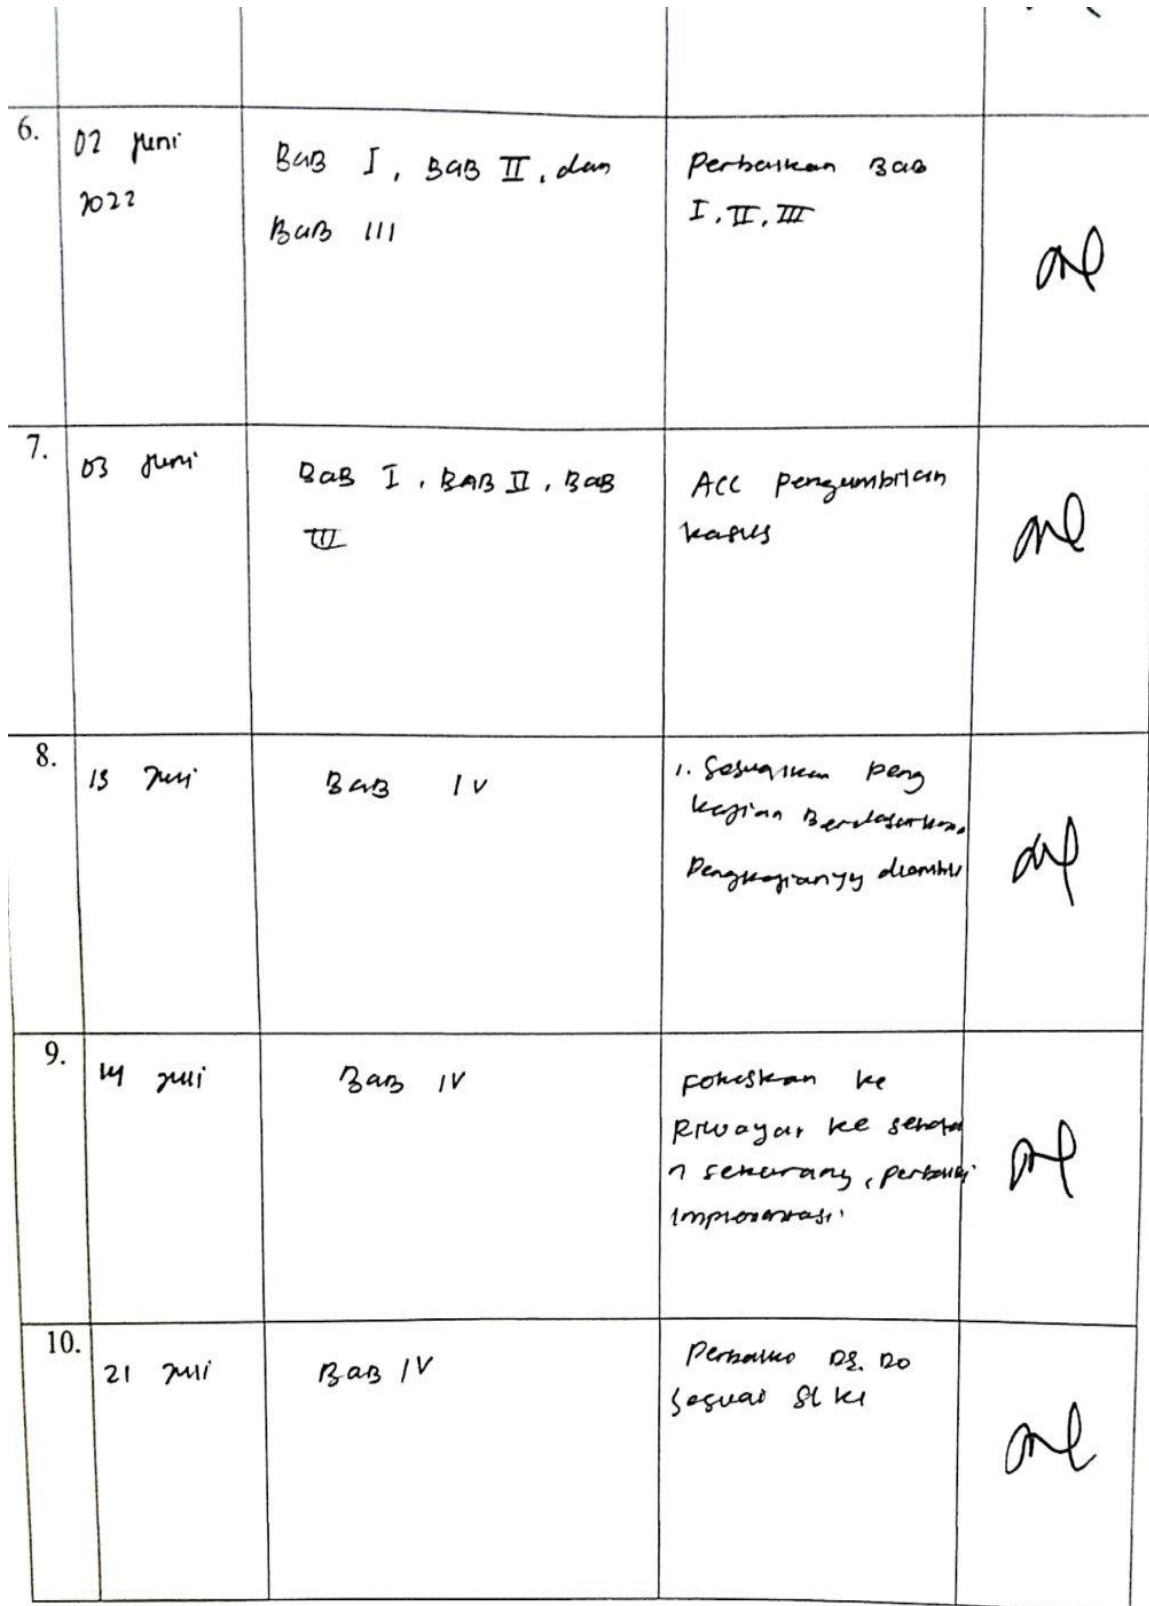 6.
02 Juni
2022
BaB I, BaB II, dan
BaB III
Perbaikan Bab
I, II, III
7.
03 Juni
BaB I, BAB II, BaB
III
ACC pengambilan
kasus
8.
13 Juli
BaB IV
1. Sesuaikan peng
kajian Berdasarkan
Pengkajian yg diambil
9.
14 Juli
BaB IV
Fokuskan ke
Riwayat ke sehata
n sekarang, perbaiki
Implementasi
10.
21 Juli
BaB IV
Perbaiki DS. DO
Sesuai SIKI